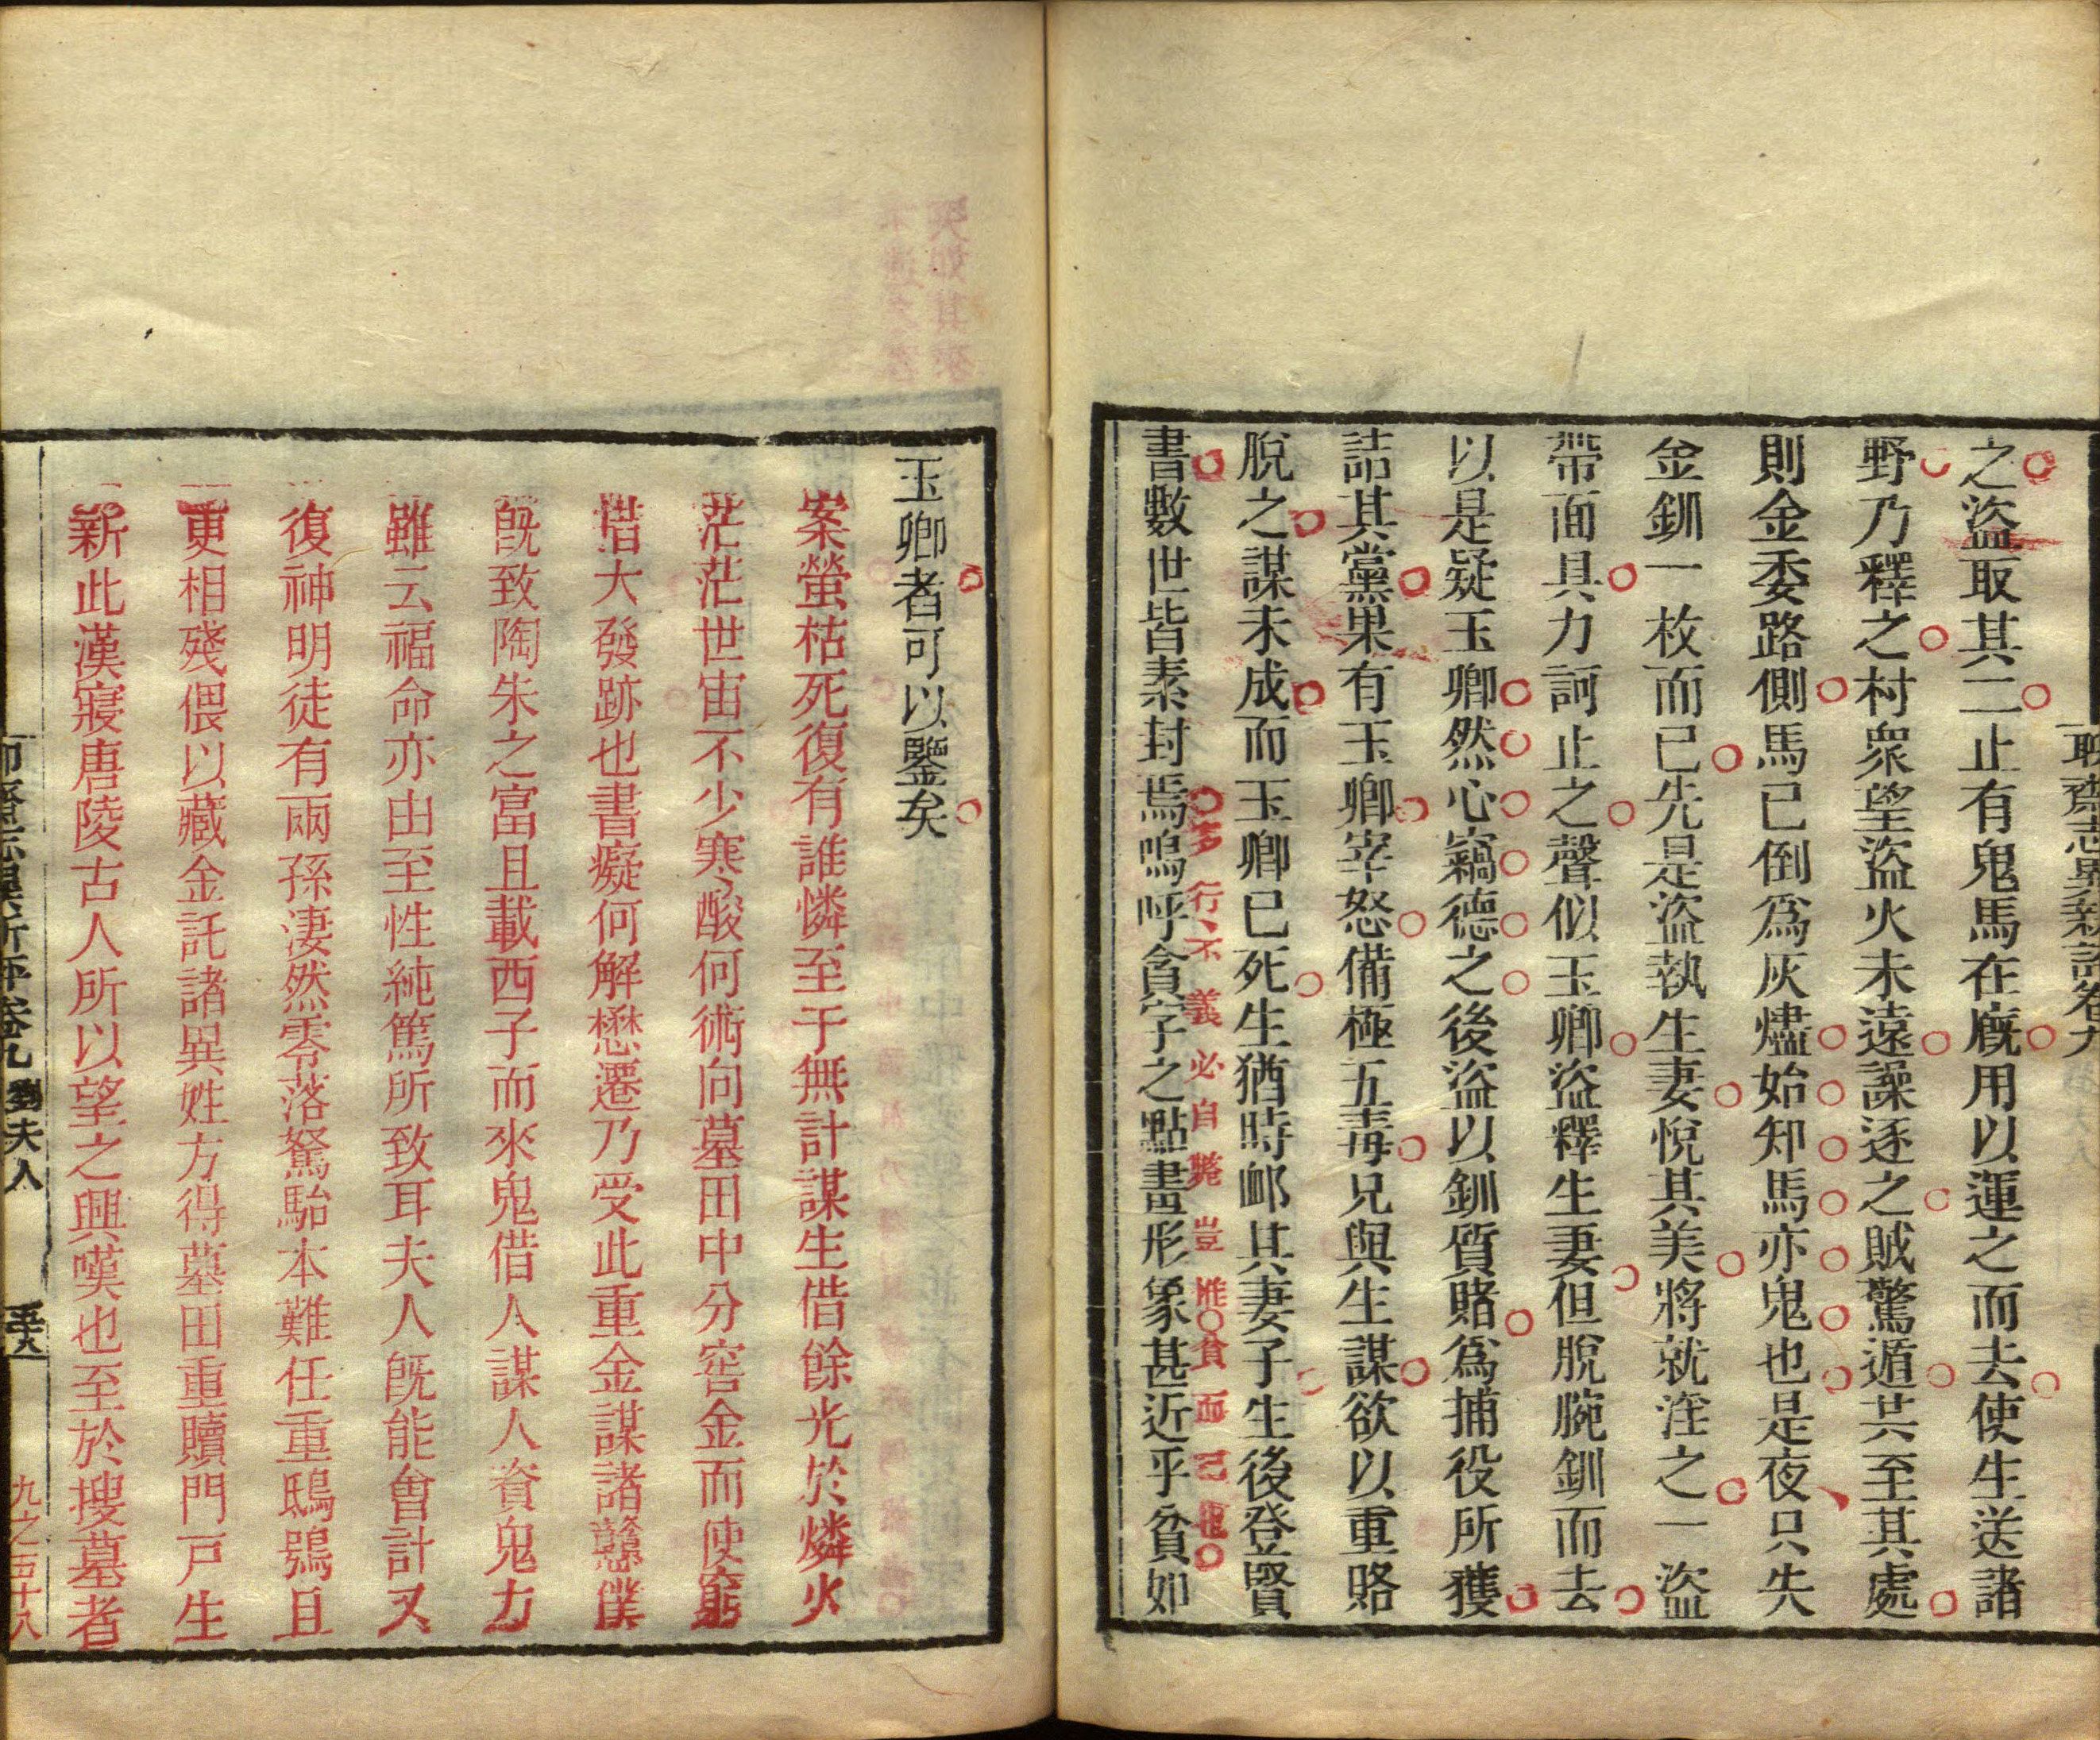 聊齋志異新評卷九
之盜取其二止有鬼馬在廐用以運之而去使生送諸
野乃釋之村衆望盜火未遠譟逐之賊驚遁共至其處
則金委路側馬已倒爲灰燼始知馬亦鬼也是夜只失
金釧一枚而已先是盜執生妻悅其美將就淫之一盜
帶面具力訶止之聲似玉卿盜釋生妻但脫腕釧而去
以是疑玉卿然心竊德之後盜以釧質賭爲捕役所獲
詰其黨果有玉卿宰怒備極五毒兄與生謀欲以重賂
脫之謀未成而玉卿已死生猶時卹其妻子生後登賢
書數世皆素封焉嗚呼貪字之點畫形象甚近乎貧如
多行不義必自斃豈惟貧而已哉
玉卿者可以鑒矣
案螢枯死復有誰憐至于無計謀生借餘光於燐火
茫茫世宙不少寒酸何術向墓田中分窖金而使窮
措大發跡也書癡何解懋遷乃受此重金謀諸戇僕
旣致陶朱之富且載西子而來鬼借人謀人資鬼力
雖云福命亦由至性純篤所致耳夫人旣能會計又
復神明徒有兩孫淒然零落駑駘本難任重鴟鴞且
更相殘偎以藏金託諸異姓方得墓田重贖門戸生
新此漢寢唐陵古人所以望之興嘆也至於搜墓者
聊齋志異新評卷九 劉夫人 五十八
九之五十八